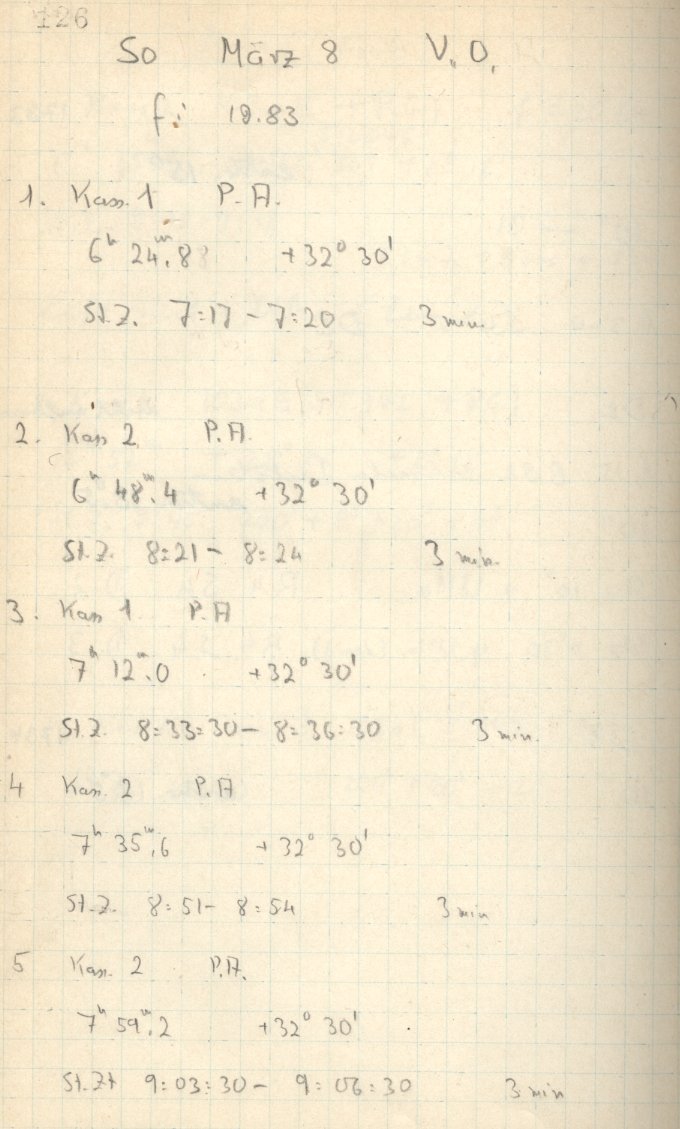 126
So März 8 V. O.
f: 19.83
1. Kass. 1 P. A.
6ʰ 24ᵐ.8 +32° 30'
St. Z. 7:17 - 7:20 3 min.
2. Kass 2 P. A.
6ʰ 48ᵐ.4 +32° 30'
St. Z. 8:21 - 8:24 3 min.
3. Kass 1 P. A
7ʰ 12ᵐ.0 +32° 30'
St. Z. 8:33:30 - 8:36:30 3 min.
4 Kass. 2 P. A
7ʰ 35ᵐ.6 +32° 30'
St. Z. 8:51 - 8:54 3 min
5 Kass. 2 P. A.
7ʰ 59ᵐ.2 +32° 30'
St. Zt 9:03:30 - 9:06:30 3 min